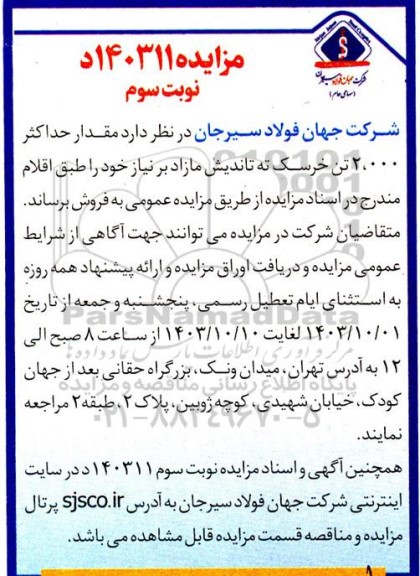 مزایده ۱۴۰۳۱۱د
نوبت سوم
شرکت جهان فولاد سیرجان
(سهامی عام)
شرکت جهان فولاد سیرجان در نظر دارد مقدار حداکثر
۲،۰۰۰ تن خرسک ته تاندیش مازاد بر نیاز خود را طبق اقلام
مندرج در اسناد مزایده از طریق مزایده عمومی به فروش برساند.
متقاضیان شرکت در مزایده می توانند جهت آگاهی از شرایط
عمومی مزایده و دریافت اوراق مزایده و ارائه پیشنهاد همه روزه
به استثنای ایام تعطیل رسمی، پنجشنبه و جمعه از تاریخ
۱۴۰۳/۱۰/۰۱ لغایت ۱۴۰۳/۱۰/۱۰ از ساعت ۸ صبح الی
۱۲ به آدرس تهران، میدان ونک، بزرگراه حقانی بعد از جهان
کودک، خیابان شهیدی، کوچه ژوبین، پلاک ۲، طبقه ۲ مراجعه
نمایند.
همچنین آگهی و اسناد مزایده نوبت سوم ۱۴۰۳۱۱د در سایت
اینترنتی شرکت جهان فولاد سیرجان به آدرس sjsco.ir پرتال
مزایده و مناقصه قسمت مزایده قابل مشاهده می باشد.
ParsNamadData
پایگاه اطلاع رسانی مناقصه و مزایده
۰۲۱-۸۸۳۴۹۶۷۰-۵